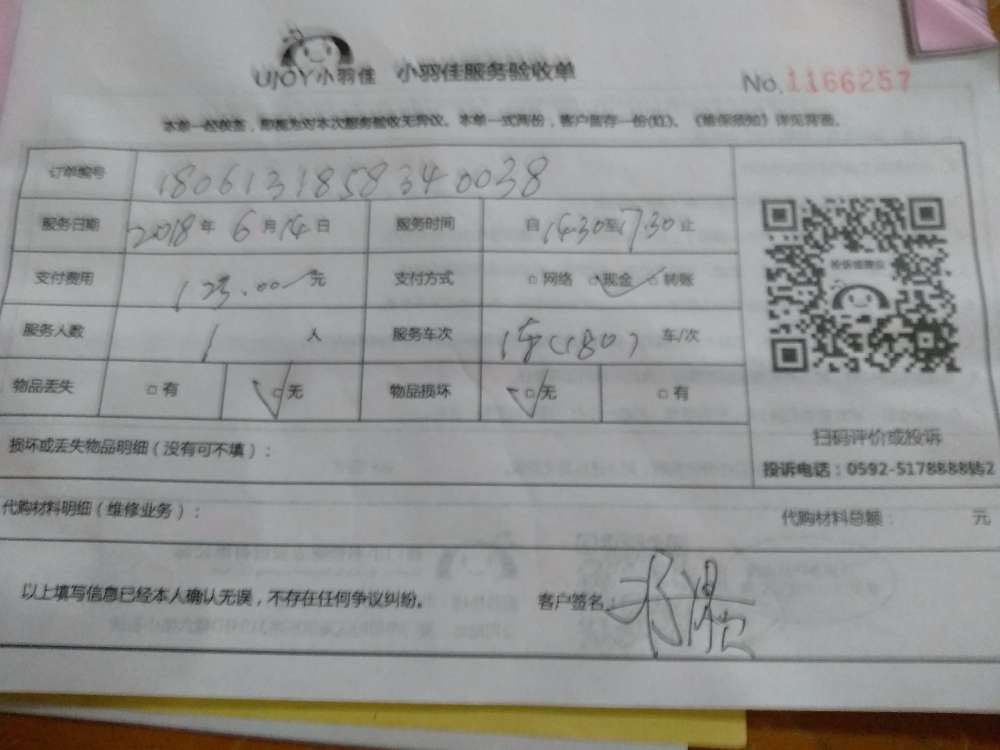 UJOY小羽佳 小羽佳服务验收单
No.1166257
本单一经签签，即视为对本次服务验收无异议。本单一式两份，客户留存一份(红)。《维保须知》详见背面。
订单编号 1806131858340038
服务日期 2018年6月14日 服务时间 自14:30至17:30止
支付费用 123.00元 支付方式 □网络 □现金 □转账
服务人数 1人 服务车次 车/次
物品丢失 □有 □无 物品损坏 □无 □有
损坏或丢失物品明细（没有可不填）：
扫码评价或投诉
投诉电话：0592-5178888转2
代购材料明细（维修业务）： 代购材料总额： 元
以上填写信息已经本人确认无误，不存在任何争议纠纷。 客户签名：